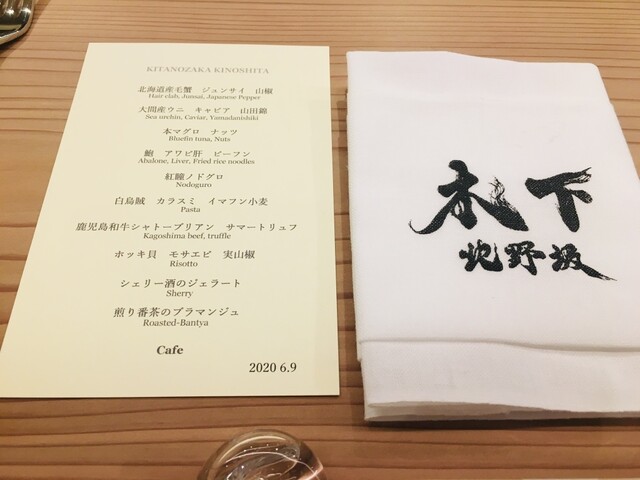 KITANOZAKA KINOSHITA
北海道産毛蟹 ジュンサイ 山椒
Hair club, Junsai, Japanese Pepper
大間産ウニ キャビア 山田錦
Sea urchin, Caviar, Yamadanishiki
本マグロ ナッツ
Bluefin tuna, Nuts
鮑 アワビ肝 ビーフン
Abalone, Liver, Fried rice noodles
紅瞳ノドグロ
Nodoguro
白烏賊 カラスミ イマフン小麦
Pasta
鹿児島和牛シャトーブリアン サマートリュフ
Kagoshima beef, truffle
ホッキ貝 モサエビ 実山椒
Risotto
シェリー酒のジェラート
Sherry
煎り番茶のブラマンジュ
Roasted-Bantya
Cafe
2020 6.9
木下
北野坂